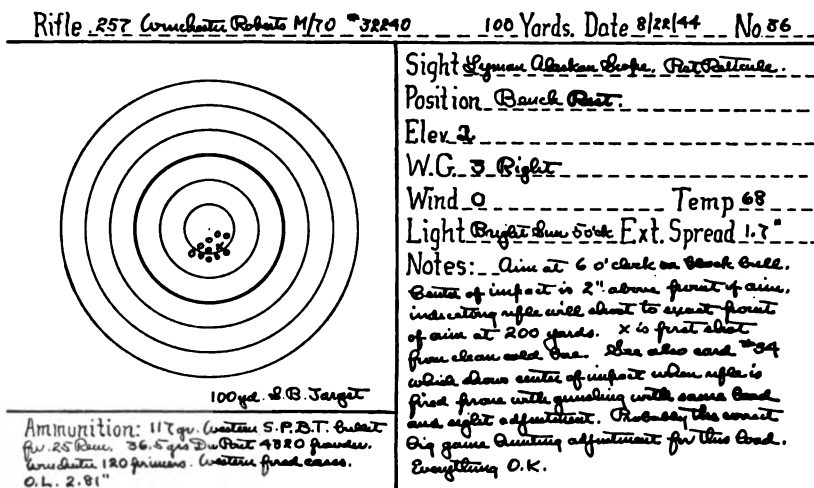 Rifle .257 Winchester Roberts M/70 #32240 100 Yards. Date 8/22/44 No. 36
Sight Lyman Alaskan Scope. Post Reticule.
Position Bench Rest.
Elev 2
W.G. 3 Right
Wind 0 Temp 68
Light Bright Sun 5 o'ck Ext. Spread 1.7"
Notes: Aim at 6 o'clock on black bull.
Center of impact is 2" above point of aim,
indicating rifle will shoot to exact point
of aim at 200 yards. x is first shot
from clean cold bore. See also card #34
which shows center of impact when rifle is
fired prone with gunsling with same load
and sight adjustment. Probably the correct
big game hunting adjustment for this load.
Everything O.K.
100 yd. S.B. Target
Ammunition: 117 gr. Western S.P.B.T. bullet
for .25 Rem. 36.5 grs Du Pont 4320 powder.
Winchester 120 primers. Western fired cases.
O.L. 2.81"